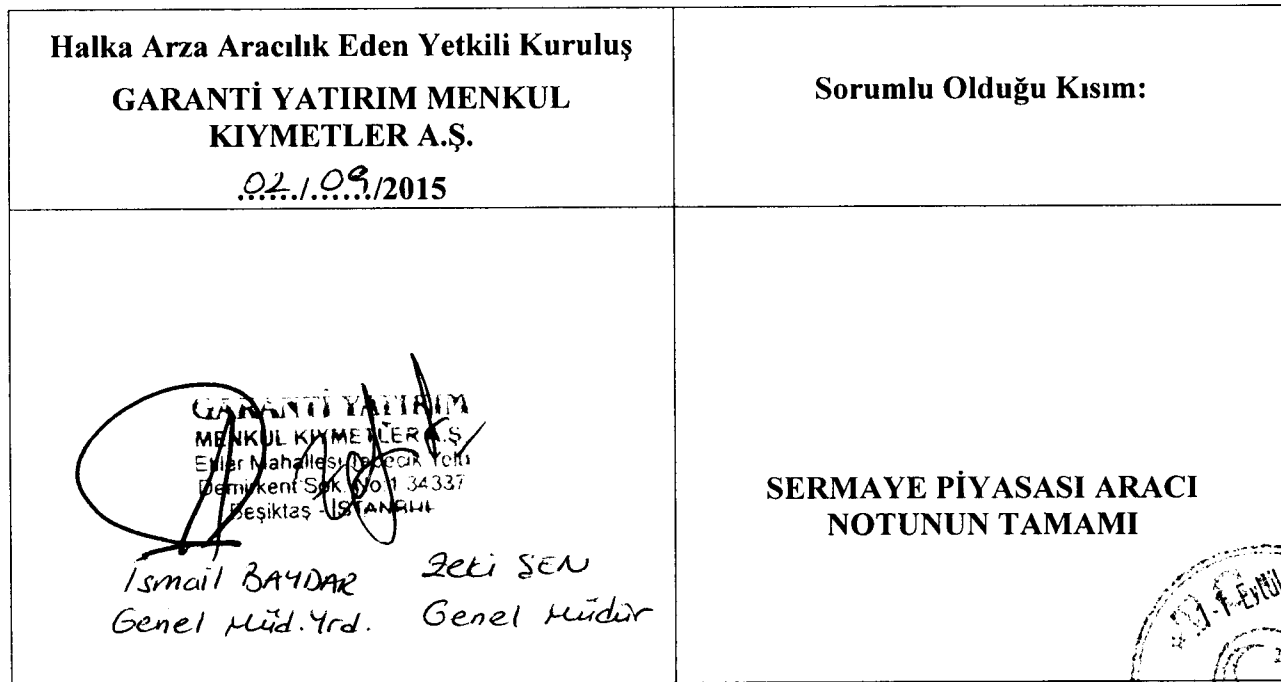 Halka Arza Aracılık Eden Yetkili Kuruluş
GARANTİ YATIRIM MENKUL
KIYMETLER A.Ş.
02/09/2015
Sorumlu Olduğu Kısım:
GARANTİ YATIRIM
MENKUL KIYMETLER A.Ş.
Etiler Mahallesi Tepecik Yolu
Demirkent Sok. No 1 34337
Beşiktaş - İSTANBUL
İsmail BAYDAR
Genel Müd. Yrd.
Zeki ŞEN
Genel Müdür
SERMAYE PİYASASI ARACI
NOTUNUN TAMAMI
Eylül